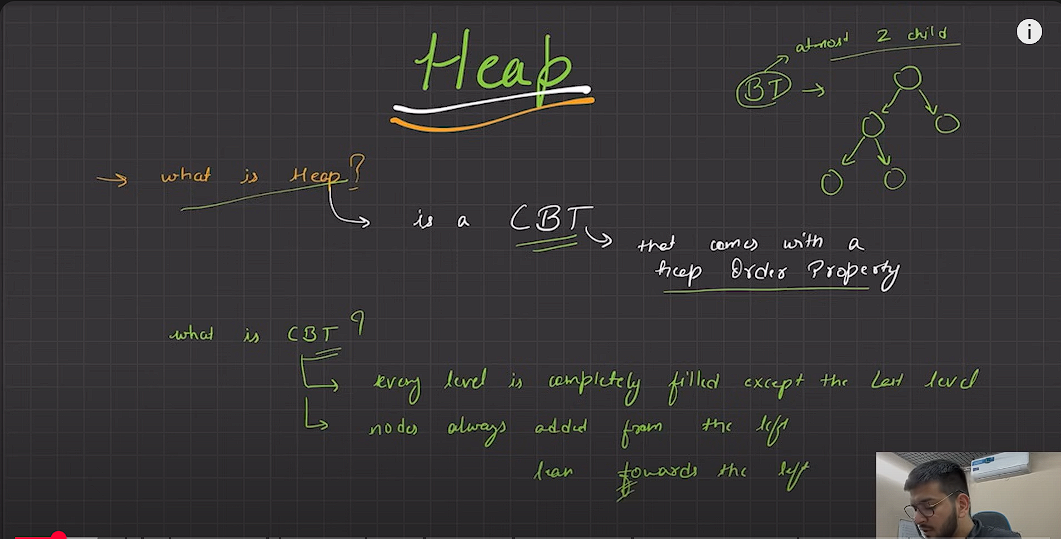 Heap
BT → atmost 2 child
→ what is Heap?
is a CBT
that comes with a
heap Order Property
what is CBT ?
every level is completely filled except the last level
nodes always added from the left
lean towards the left